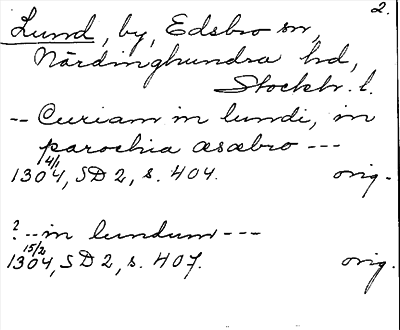 2.
Lund, by, Edsbro sn,
Närdinghundra hd,
Stockh. l.
-- Curiam in lundi, in
parochia æsæbro ---
4/1
1304, SD 2, s. 404. orig.
? -- in lundum ---
15/2
1304, SD 2, s. 407. orig.